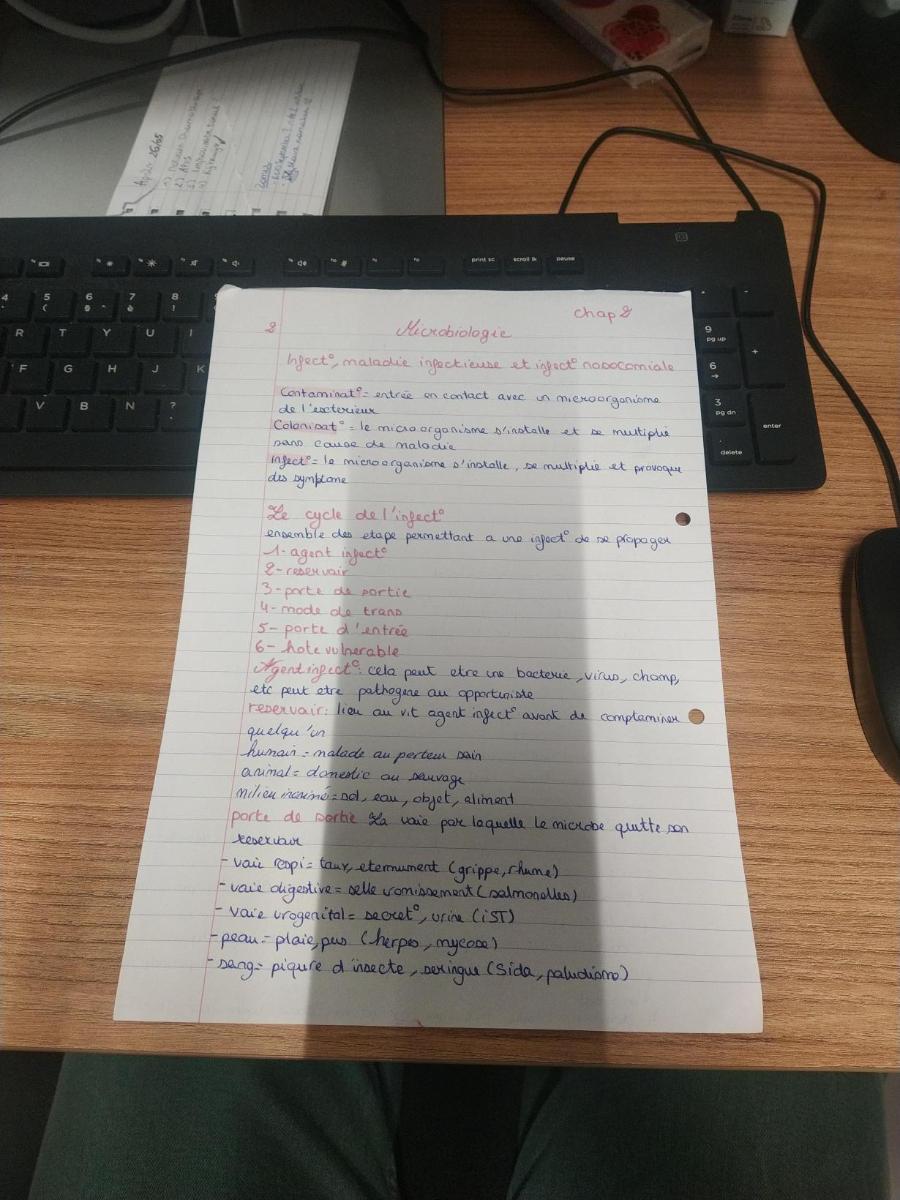 Après 26/05
print sc
scroll lk
pause
4 5 6 7 8
( - è !
R T Y U I
F G H J K
V B N ?
9
pg up
6
3
pg dn
+
-
enter
delete
2
Chap 2
Microbiologie
Infect°, maladie infectieuse et infect° nosocomiale
Contaminat° = entrée en contact avec un microorganisme
de l'exterieur
Colonisat° = le microorganisme s'installe et se multiplie
sans cause de maladie
infect° = le microorganisme s'installe, se multiplie et provoque
des symptome
Le cycle de l'infect°
ensemble des etape permettant a une infect° de se propager
1- agent infect°
2- reservoir
3- porte de sortie
4- mode de trans
5- porte d'entrée
6- hote vulnerable
Agent infect° : cela peut etre une bacterie, virus, champ,
etc peut etre pathogene ou opportuniste
reservoir : lieu ou vit agent infect° avant de comptaminer
quelqu'un
humain = malade ou porteur sain
animal = domestic ou sauvage
milieu inanimé = sol, eau, objet, aliment
porte de sortie La voie par laquelle le microbe quitte son
reservoir
- voie respi = toux, eternument (grippe, rhume)
- voie digestive = selle vomissement (salmonelles)
- voie urogenital = secret°, urine (iST)
- peau = plaie, pus (herpes, mycose)
- sang = piqure d'insecte, seringue (Sida, paludisme)